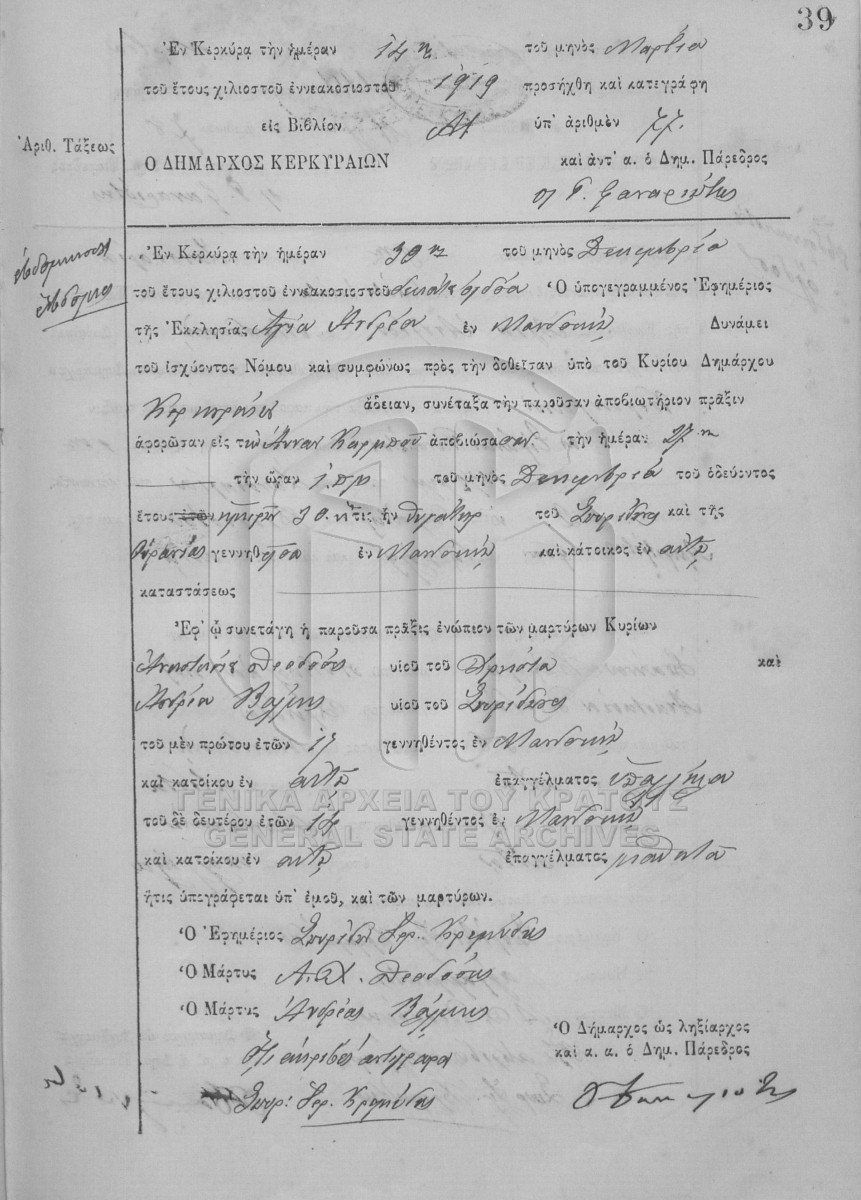 39
Ἐν Κερκύρᾳ τὴν ἡμέραν 14η τοῦ μηνὸς Μαρτίου
τοῦ ἔτους χιλιοστοῦ ἐννεακοσιοστοῦ 1919 προσήχθη καὶ κατεγράφη
εἰς Βιβλίον Αον ὑπ' ἀριθμὸν 77.
Ἀριθ. Τάξεως
Ο ΔΗΜΑΡΧΟΣ ΚΕΡΚΥΡΑΙΩΝ καὶ ἀντ' α. ὁ Δημ. Πάρεδρος
Ἐν Κερκύρᾳ τὴν ἡμέραν 30η τοῦ μηνὸς Δεκεμβρίου
τοῦ ἔτους χιλιοστοῦ ἐννεακοσιοστοῦ Ὁ ὑπογεγραμμένος Ἐφημέριος
τῆς Ἐκκλησίας Ἁγίου Ἀνδρέου ἐν Μανδουκίῳ Δυνάμει
τοῦ ἰσχύοντος Νόμου καὶ συμφώνως πρὸς τὴν δοθεῖσαν ὑπὸ τοῦ Κυρίου Δημάρχου
Κερκυραίων ἄδειαν, συνέταξα τὴν παροῦσαν ἀποβιωτήριον πρᾶξιν
ἀφορῶσαν εἰς τὴν Ἄνναν ἀποβιώσασαν τὴν ἡμέραν 27ην
τὴν ὥραν 1 π.μ. τοῦ μηνὸς Δεκεμβρίου τοῦ ὁδεύοντος
ἔτους ἐτῶν ἡμερῶν 30. ἥτις ἦν θυγάτηρ τοῦ Σπυρίδωνος καὶ τῆς
Οὐρανίας γεννηθεῖσα ἐν Μανδουκίῳ καὶ κάτοικος ἐν αὐτῷ
καταστάσεως
Ἐφ' ᾧ συνετάγη ἡ παροῦσα πρᾶξις ἐνώπιον τῶν μαρτύρων Κυρίων
υἱοῦ τοῦ Χρήστου καὶ
Ἀνδρέου Βλάχου υἱοῦ τοῦ Σπυρίδωνος
τοῦ μὲν πρώτου ἐτῶν γεννηθέντος ἐν Μανδουκίῳ
καὶ κατοίκου ἐν αὐτῷ ἐπαγγέλματος ὑπαλλήλου
ΓΕΝΙΚΑ ΑΡΧΕΙΑ ΤΟΥ ΚΡΑΤΟΥΣ
τοῦ δὲ δευτέρου ἐτῶν γεννηθέντος ἐν Μανδουκίῳ
GENERAL STATE ARCHIVES
καὶ κατοίκου ἐν αὐτῷ ἐπαγγέλματος
ἥτις ὑπογράφεται ὑπ' ἐμοῦ, καὶ τῶν μαρτύρων.
Ὁ Ἐφημέριος Σπυρίδων
Ὁ Μάρτυς Α. Χ.
Ὁ Μάρτυς Ἀνδρέας
Ὁ Δήμαρχος ὡς ληξίαρχος
καὶ α. α. ὁ Δημ. Πάρεδρος